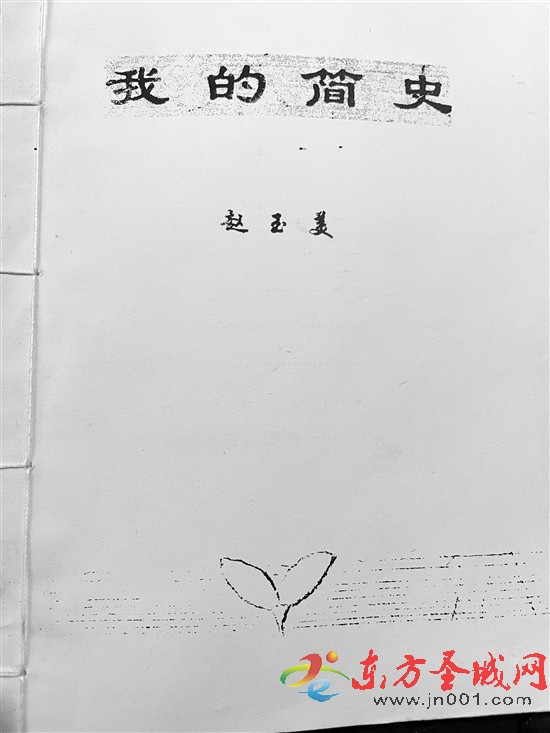 我的简史
赵玉美
东方圣城网
www.jn001.com